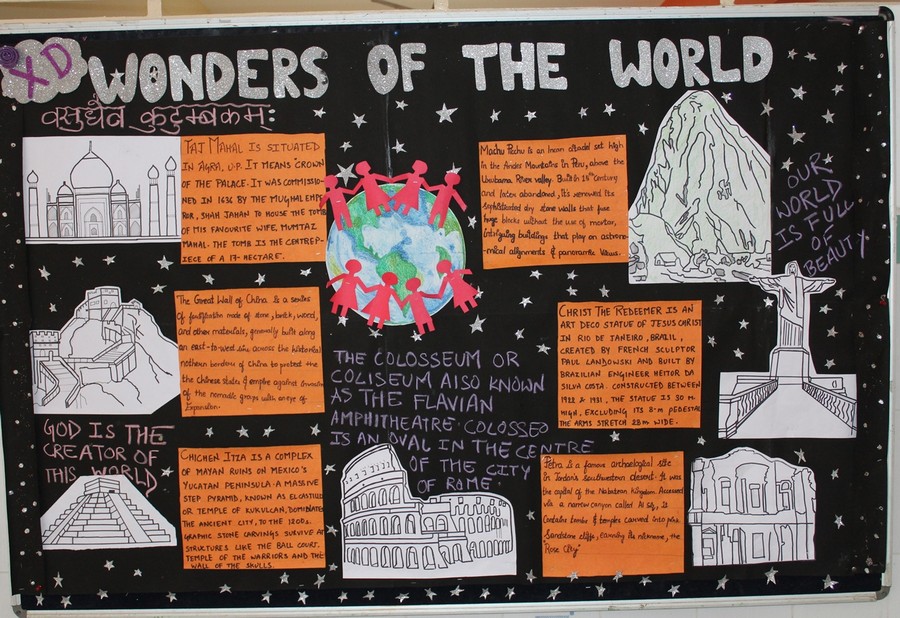 XD
WONDERS OF THE WORLD
वसुधैव कुटुम्बकम्:
TAJ MAHAL IS SITUATED
IN AGRA, U.P. IT MEANS 'CROWN
OF THE PALACE. IT WAS COMMISSIO-
NED IN 1632 BY THE MUGHAL EMPE
ROR, SHAH JAHAN TO HOUSE THE TOMB
OF HIS FAVOURITE WIFE, MUMTAZ
MAHAL. THE TOMB IS THE CENTREP-
IECE OF A 17-HECTARE.
Machu Pichu is an Incan citadel set high
in the Andes Mountains in Peru, above the
Urubama River valley. Built in 15th century
and later abandoned, It's renowned its
sophisticated dry stone walls that fuse
huge blocks without the use of mortar,
intriguing buildings that play on astrono-
mical alignments & panoramic views.
OUR
WORLD
IS FULL
OF
BEAUTY.
The Great Wall of China is a series
of fortification made of stone, brick, wood,
and other materials, generally built along
an east-to-west line across the historical
northern borders of China to protect the
the Chinese states & empire against
of the nomadic groups with an eye of
Expansion.
CHRIST THE REDEEMER IS AN
ART DECO STATUE OF JESUS CHRIST
IN RIO DE JANEIRO, BRAZIL,
CREATED BY FRENCH SCULPTOR
PAUL LANDOWSKI AND BUILT BY
BRAZILIAN ENGINEER HEITOR DA
SILVA COSTA. CONSTRUCTED BETWEEN
1922 & 1931, THE STATUE IS 30 m
HIGH, EXCLUDING ITS 8-M PEDESTAL
THE ARMS STRETCH 28m WIDE.
THE COLOSSEUM OR
COLISEUM ALSO KNOWN
AS THE FLAVIAN
AMPHITHEATRE COLOSSEO
IS AN OVAL IN THE CENTRE
OF THE CITY
OF ROME.
GOD IS THE
CREATOR OF
THIS WORLD
CHICHEN ITZA IS A COMPLEX
OF MAYAN RUINS ON MEXICO'S
YUCATAN PENINSULA. A MASSIVE
STEP PYRAMID, KNOWN AS EL CASTILLO
OR TEMPLE OF KUKULCAN, DOMINATES
THE ANCIENT CITY, TO THE 1200s.
GRAPHIC STONE CARVINGS SURVIVE AT
STRUCTURES LIKE THE BALL COURT.
TEMPLE OF THE WARRIORS AND THE
WALL OF THE SKULLS.
Petra is a famous archaelogical site
in Jordan's southwestern desert. It was
the capital of the Nabatean Kingdom. Accessed
via a narrow canyon called Al Siq, it
contains tombs & temples carved into pink
Sandstone cliffs, earning its nickname, the
'Rose City'